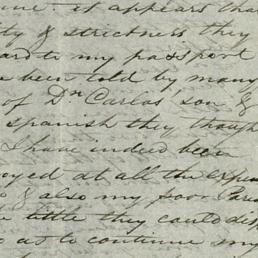 it appears that
ty & strictness they
ard to my passport
been told by many
of Dn Carlos' son &
spanish they though
I have indeed been
oyed at all the expen
& also my poor Pare
little they could dis
so as to continue my